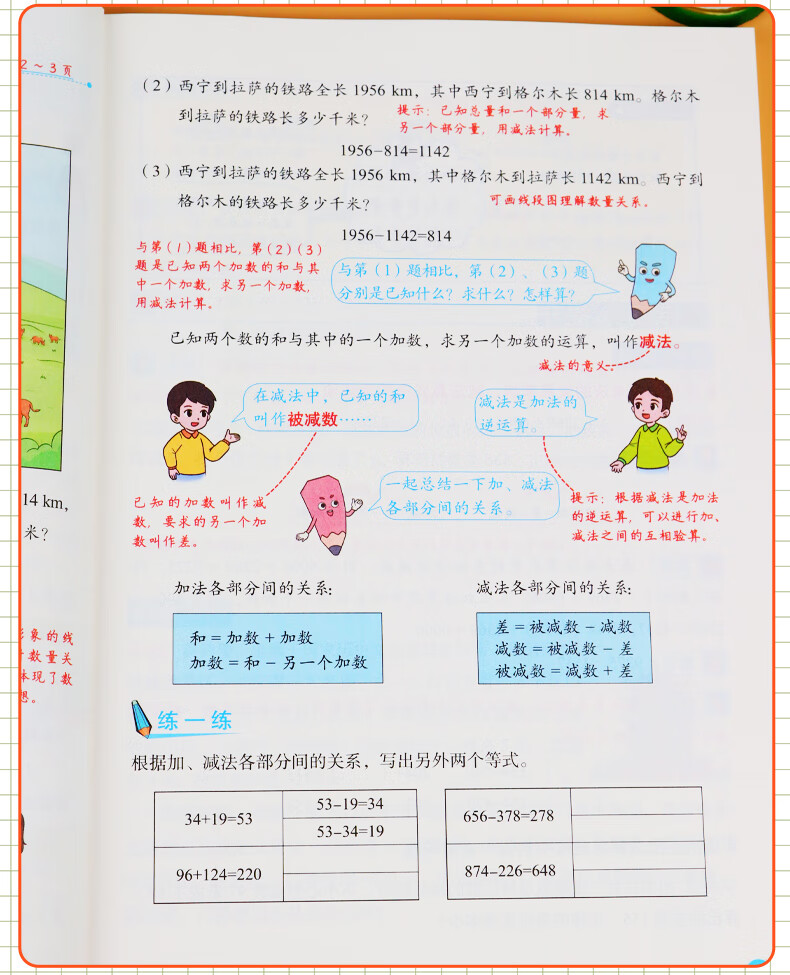 2～3页
(2) 西宁到拉萨的铁路全长 1956 km，其中西宁到格尔木长 814 km。格尔木
到拉萨的铁路长多少千米？
提示：已知总量和一个部分量，求
另一个部分量，用减法计算。
1956−814=1142
(3) 西宁到拉萨的铁路全长 1956 km，其中格尔木到拉萨长 1142 km。西宁到
格尔木的铁路长多少千米？
可画线段图理解数量关系。
1956−1142=814
与第(1)题相比，第(2)(3)
题是已知两个加数的和与其
中一个加数，求另一个加数，
用减法计算。
与第(1)题相比，第(2)、(3)题
分别是已知什么？求什么？怎样算？
已知两个数的和与其中的一个加数，求另一个加数的运算，叫作减法。
减法的意义
在减法中，已知的和
叫作被减数……
减法是加法的
逆运算。
已知的加数叫作减
数，要求的另一个加
数叫作差。
一起总结一下加、减法
各部分间的关系。
提示：根据减法是加法
的逆运算，可以进行加、
减法之间的互相验算。
14 km，
米？
象的线
数量关
体现了数
想。
加法各部分间的关系：
和＝加数＋加数
加数＝和－另一个加数
减法各部分间的关系：
差＝被减数－减数
减数＝被减数－差
被减数＝减数＋差
练一练
根据加、减法各部分间的关系，写出另外两个等式。
34+19=53
53−19=34
53−34=19
96+124=220
656−378=278
874−226=648